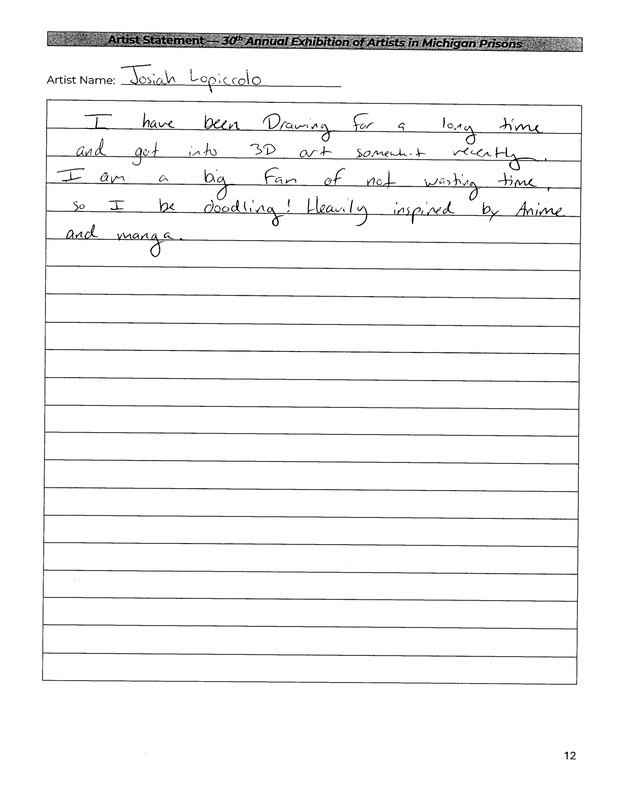 Artist Statement — 30th Annual Exhibition of Artists in Michigan Prisons
Artist Name: Josiah Lopiccolo
I have been Drawing for a long time
and got into 3D art somewhit recently.
I am a big Fan of not wasting time,
so I be doodling! Heavily inspired by Anime
and manga.
12